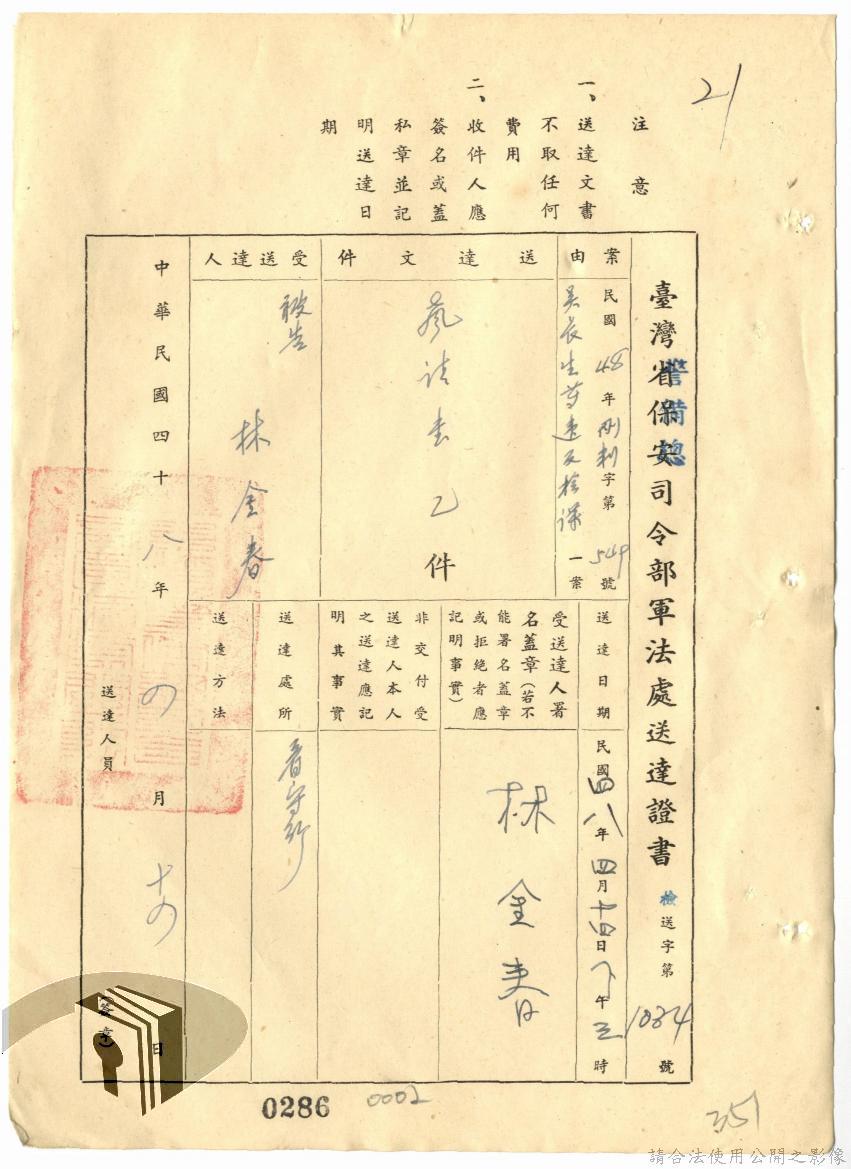 21
注意
一、送達文書
不取任何
費用
二、收件人應
簽名或蓋
私章並記
明送達日
期
臺灣省保安司令部軍法處送達證書
警備總
檢送字第1034號
案由
民國48年 字第549號
吳長生等 一案
送達文件
書乙件
受送達人
被告
林金春
送達日期
民國四八年四月十四日下午三時
受送達人署
名蓋章(若不
能署名蓋章
或拒絕者應
記明事實)
林金春
非交付受
送達人本人
之送達應記
明其事實
送達處所
看守所
送達方法
中華民國四十八年四月十四日
送達人員
(簽章)
0286
0002
351
請合法使用公開之影像